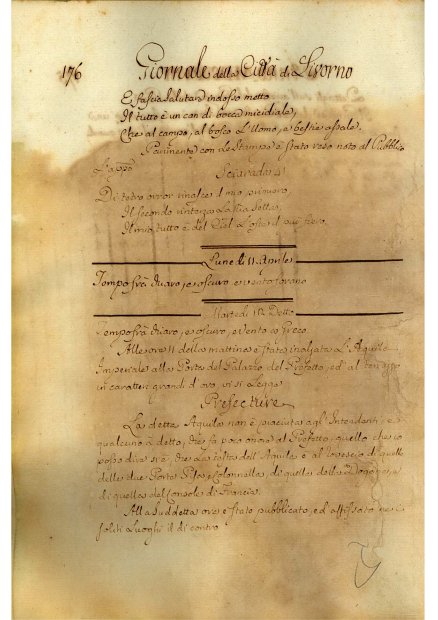 176 Giornale della Città di Livorno
E fascia salutar indosso metto
Il tutto è un can di bocca micidiale,
Che al campo, al bosco L'Uomo, e bestie assale.
Parimente con Le Stampe è stato reso noto al Pubblico
Sciarada 4
Di tetro orror
Il secondo rinforza La sua setta
Il mio tutto è del Ciel
Lunedì 11 Aprile
Tempo frà chiaro, e oscuro e vento
Martedì 12 Detto
Tempo frà chiaro, e oscuro, e Vento a Greco
Alle ore 11 della mattina è stata inalzata L'Aquila
Imperiale alla Porta del Palazzo del Prefetto, ed al
in caratteri grandi d'oro vi si Legge
Prefecture
La detta Aquila non è piaciuta agl'Intendenti, e
qualcuno à detto, che fa poco onore al Prefetto, quello che io
posso dire si è, che La testa dell'Aquila è al rovescio di quelle
delle due Porte Pisa, e Colonnella, di quella della Dogana, e
di quella del Console di Francia.
Alla suddetta ora è stato pubblicato, ed affissato per i
soliti Luoghi il di contro